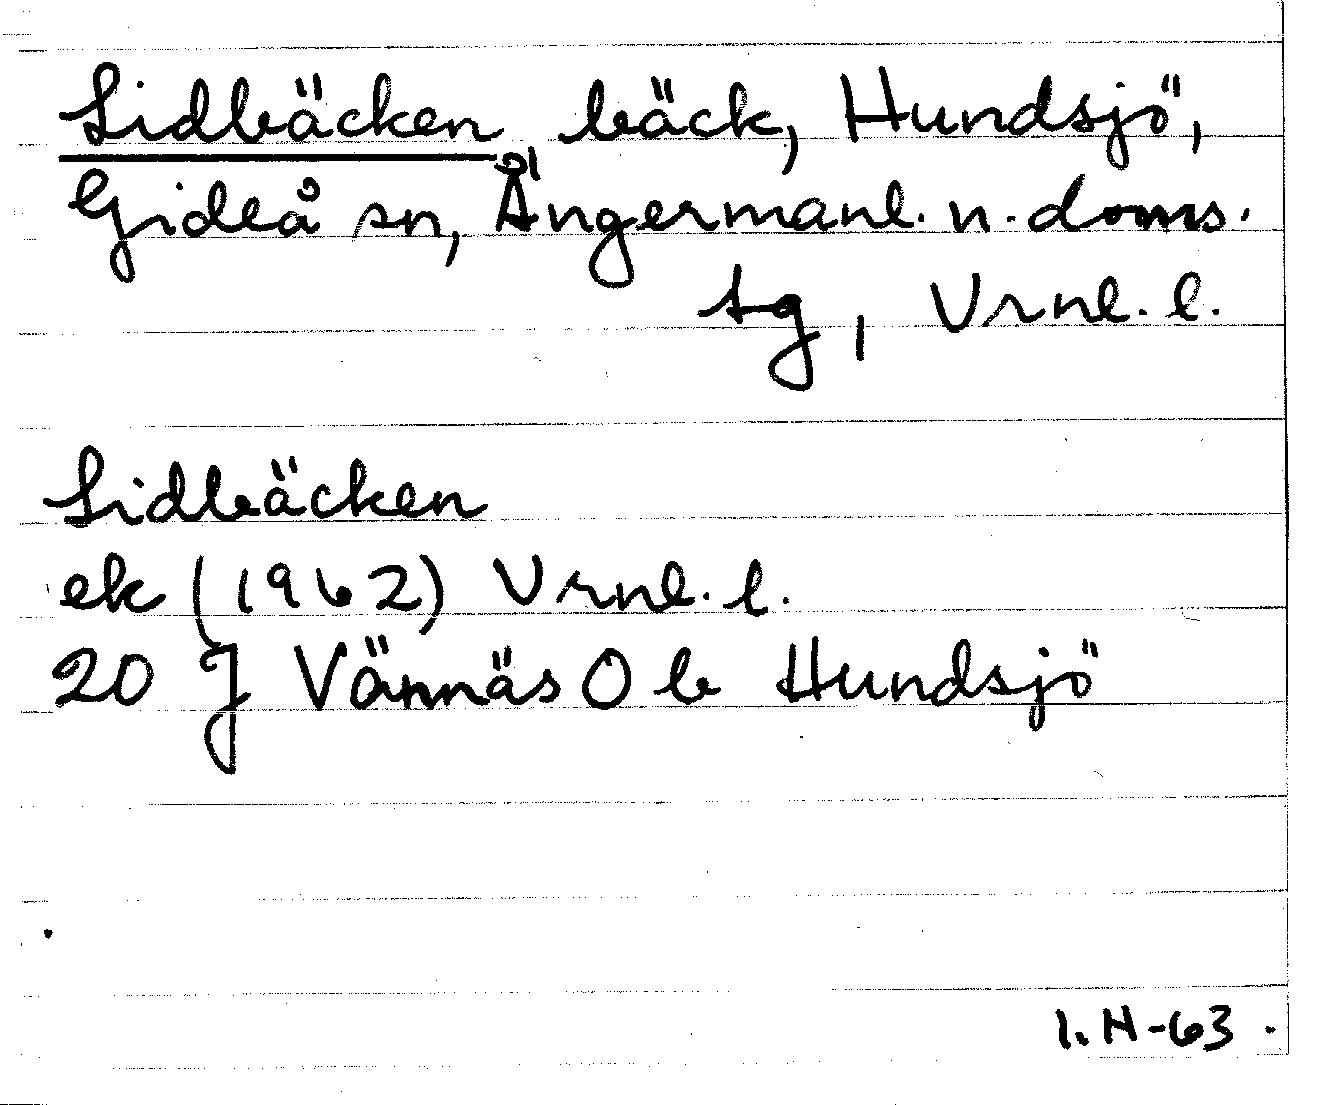 Lidbäcken bäck, Hundsjö,
Gideå sn, Ångermanl. n. doms.
sg, Vrnl. l.
Lidbäcken
ek (1962) Vrnl. l.
20 J Vännäs O b Hundsjö
I. H-63.